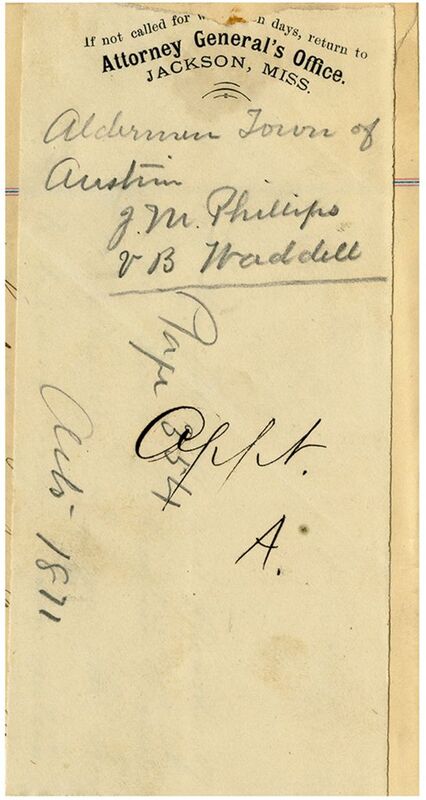 If not called for w n days, return to
Attorney General's Office.
JACKSON, MISS.
Aldermen Town of
Austin
J. M. Phillips
V B Waddell
Page 354
Appt.
A.
Acts- 1871